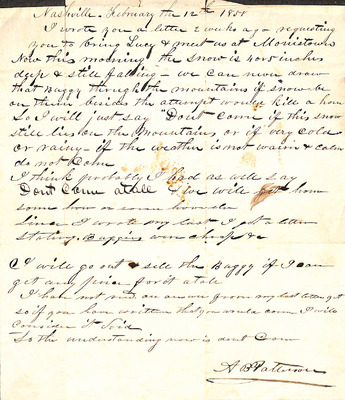 Nashville February the 12th 1850
I wrote you a letter 2 weeks ago requesting
you to bring Lucy & meet us at Morristown
Now this morning the snow is 4 or 5 inches
deep & still falling — we can never draw
that Baggy through the mountains if snow be
on them besides the attempt would kill a horse
So I will just say "Dont come if this snow
still lies on the mountains, or if very cold
or rainy — if the weather is not warm & calm
do not Come
I think probably I had as well say
Dont Come atall & we will get home
some how or
Since I wrote my last I got a letter
stating Baggies were cheap &c
I will go out & sell the Baggy if I can
get any price for it atall
I have not recd an answer from my last letter yet
so if you have written that you would come I will
consider it Void
So the understanding now is dont Come
A B Patterson